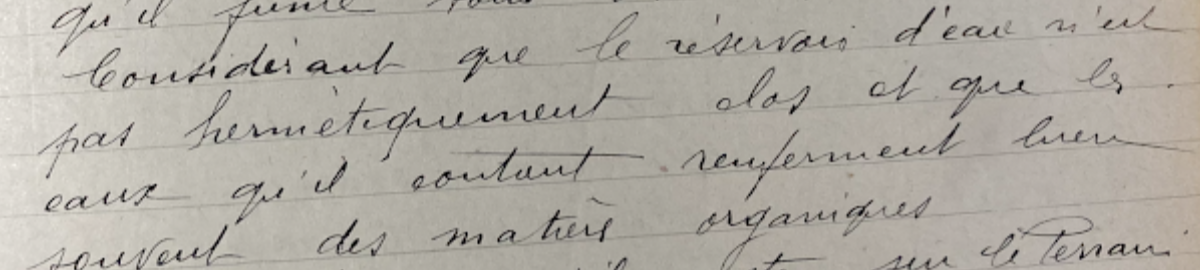 qu'il
Considérant que le réservoir d'eau n'est
pas hermétiquement clos et que les
eaux qu'il contient renferment bien
souvent des matières organiques
sur le Terrain